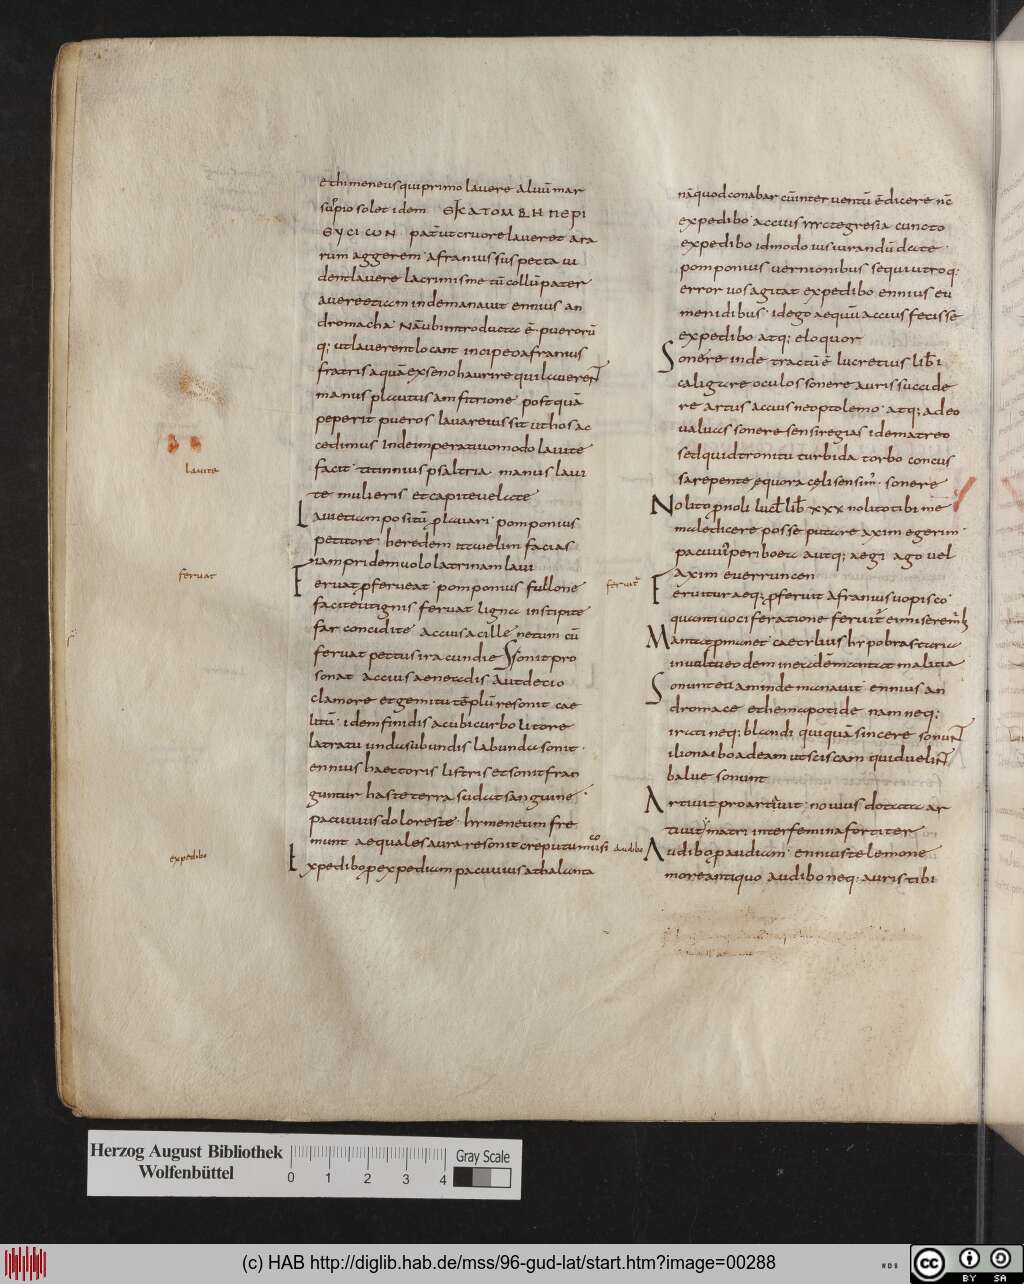 ethimeneusquiprimo lauere aluū mar
sup̄io solet idem ЄKATOMBH ΠEPI
ЄYCICωN patūtcruore laueret ara
rum aggerem afraniussuspecta ui
dentlauere lacrimisme tū collūpater
auereetiamindemanauit ennius an
dromacha Nāubiintroducta ē puerorū
q; utlauerentlocant incipetoafranius
fratrisaquāexsenohaurirequilauerent
manus plautusamfitrione postquā
peperit pueros lauareiussit uthosac
cedimus Indeimperatiuomodo lauite
facit titinniuspsaltria manus laui
te mulieris etcapiteuelate
Lauietiampositū p lauari pomponius
petitore heredem
iampridemuolo latrinam laui
Feruat p ferueat pomponius fullone
faciteutignis feruat ligna insipite
far concidite acciusacille netum cū
feruat pectusiracundie Sonit pro
sonat accius aeneadisāutdecio
clamore etgemitu tēplūresonit cae
litū idemfinidisacubicurbo litore
latratu undasubundis labunda sonit
ennius haectoris listris etsonitfran
guntur hasteterra sudatsanguine
pacuuiusdoloreste hymeneumfre
munt aequalesaura resonitcrepitumusi
Expedibo p expediam pacuuius athalanta
lauite
feruat
expedibo
nāquodconabar cūinter uentū ē dicere nc̄
expedibo accius
expedibo idmodo iusiurandū date
pomponius uernionibus sequi utroq;
error uosagitat expedibo ennius eu
menidibus idego aequū accius fecisse
expedibo atq; eloquor
Sonere inde tractū ē lucretius lib̄ i
caligare oculos sonere aurissuccide
re artus accius neoptolemo atq; adeo
ualuas sonere sensiregias idematreo
sedquidtronitu turbida torbo concus
sarepente equora celisensim sonere
Nolito p noli lucł lib̄ xxx nolitotibi me
maledicere posse putare axim egerim
pacuuīperiboea autq; aegi ago uel
axim euerruncen
Feruitur aeq; p feruit afraniusuopisco
quantiuociferatione feruit
Mantat p manet caecilius hypobrastaria
inuultueodem ineadēmantat malitia
Sonunt etiaminde manauit ennius an
dromace ethemapotide nam neq;
irati neq; blandi quiquāsincere sonunt
ilionaiboadeam utsciscam quiduelint
balue sonunt
Artiuit proartauit nouius dotata ar
tiuitmatri interfeminafortiter
Audibo p audiam enniustelemone
moreantiquo audibo neq; auris tibi
feruit
audibo
Herzog August Bibliothek
Wolfenbüttel
0 1 2 3 4
Gray Scale
(c) HAB http://diglib.hab.de/mss/96-gud-lat/start.htm?image=00288
WDB
cc BY SA